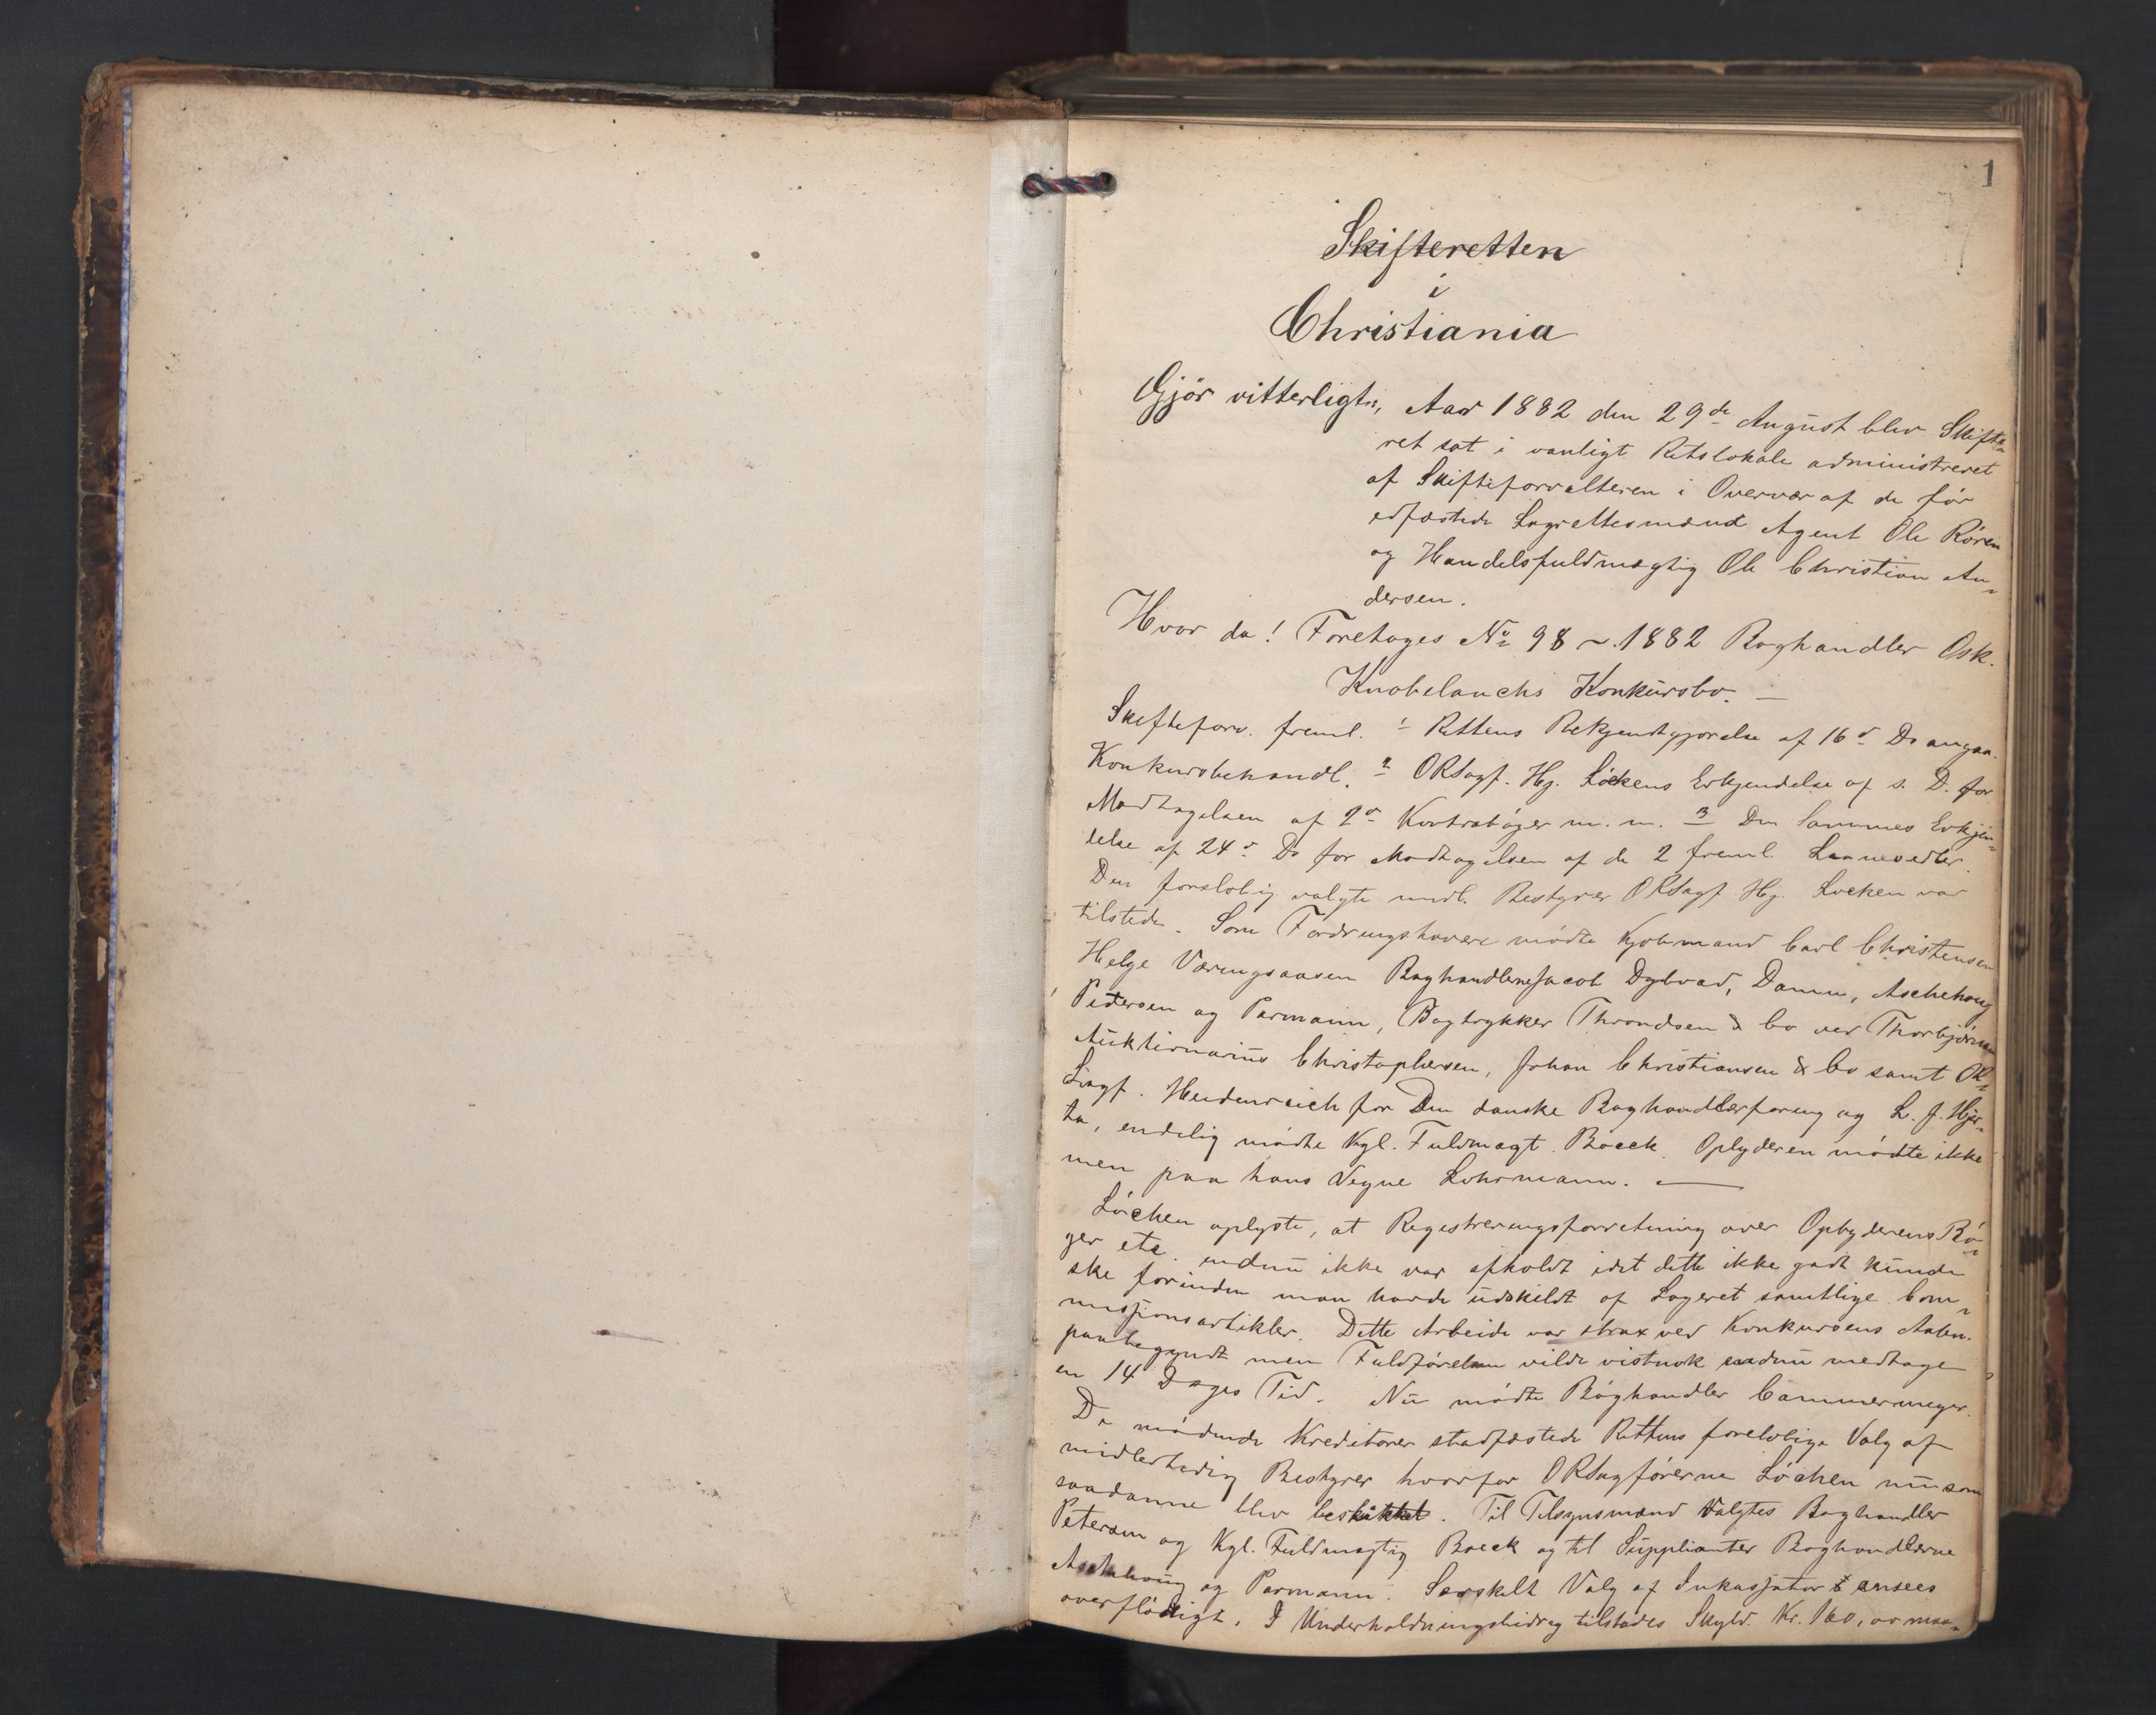 1
Skifteretten
i
Christiania
Gjör vitterligt:, Aar 1882 den 29de August blev Skifte„
ret sat i vanligt Retslokale administreret
af Skifteforvalteren i Overvær af de før
edfæstede Lagrettesmænd Agent Ole Røren
og Handelsfuldmægtig Ole Christian An„
dersen.
Hvor da! Foretoges No 98 ~ 1882 Boghandler Osk.
Knobelauchs Konkursbo. —
Skifteforv. freml. 1 Rettens Bekjendtgjørelse af 16 Ds angaa.
Konkursbehandl. 2 ORSagf. Hj. Löckens Erkjendelse af s. D. for
Modtagelsen af 2 Kontrabøger m. m. 3 Den sammes Erkjen„
delse af 24 Ds for Modtagelsen af de 2 freml. Laanesedler.
Den foreløbig valgte midl. Bestyrer ORSagf Hj. Løcken var
tilstede. Som Fordringshavere mødte Kjøbmand Carl Christensen
Helge Væringsaasen Boghandlerne Jacob Dybvad, Damm, Aschehoug
Petersen og Parmann, Bogtrykker Throndsen & Co ved Thorbjørnsen
Auktionarius Christophersen, Johan Christiansen & Co samt OR„
Sagf. Heidenreich for Den danske Boghandlerforeng og L. J. Hjer„
ta, endelig mødte Kgl. Fuldmægt. Boeck. Opbyderen mødte ikke
men paa hans Vegne Lohrmann. —
Löchen oplyste, at Registreringsforretning over Opbyderens Bø„
ger etc. endnu ikke var afholdt idet dette ikke godt kunde
ske forinden man havde udskildt af Lageret samtlige Com„
missjonsartikler. Dette Arbeide var strax ved Konkursens Aaben.
paabegyndt men Fuldførelsen vilde vistnok endnu medtage
en 14 Dages Tid. Nu mødte Bøghandler Cammermeyer.
De mødende Kreditorer stadfæstede Rettens foreløbige Valg af
midlertidig Bestyrer hvorfor ORSagførerne Löchen nu som
saadanne blev beskikket. Til Tilsynsmænd valgtes Boghandler
Petersen og Kgl. Fuldmægtig Boeck og til Supplianter Boghandlerne
Aschehoug og Parmann. Særskilt Valg af Inkassator ansees
overflödigt. I Underholdningsbidrag tilstodes Skyld. Kr. 160,00 maa„